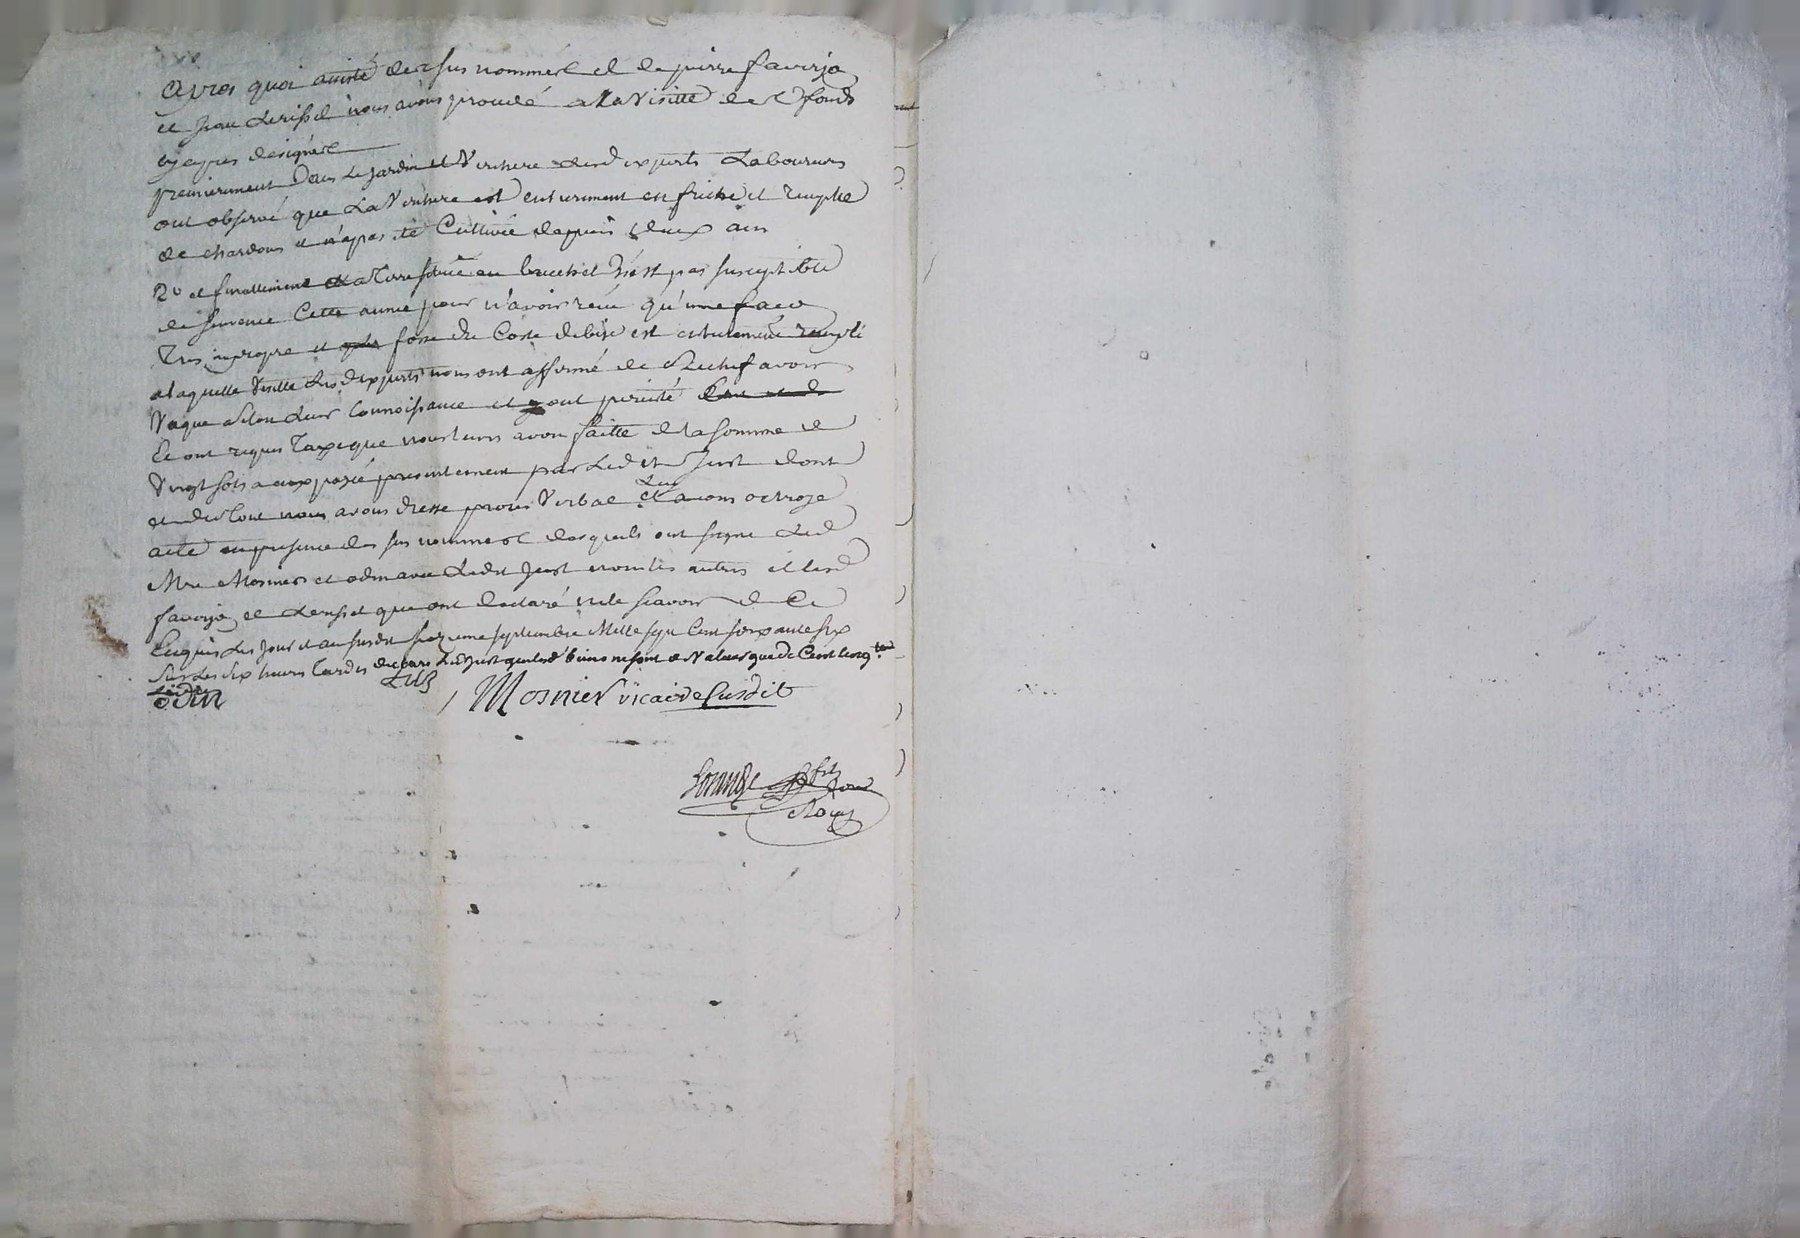 Apres quoi assisté des sus nommés et de pierre faverjo
et Jean nous avons procedé a la Visitte des fonds
cy apres designés
premierement Dans le Jardin et Verchere lesd experts Laboureurs
ont observé que La Verchere est entierement en friche et remplie
de chardons et n'a pas été Cultivée depuis deux ans
2º et finallement La Terre située au n'est pas susceptible
de semence Cette année pour n'avoir reçu qu'une
Tres impropre et fosse du Costé de bise est entierement rempli
a laquelle Visitte Lesd experts nous ont affirmé de Rechef avoir
Vaqué selon Leur Connoissance et y ont persisté
Et ont requis Taxe que nous leurs avons faitte de la somme de
Vingt sols a eux payée presentement par Ledit Just dont
et du tout nous avons dressé proces Verbal et Leur avons octroyé
acte en presence des sus nommés desquels ont signé Led
Mre Mosnier et odin avec Ledit Just non les autres et lesd
faverjo et que ont declaré ne le scavoir de Ce
Enquis Les Jour et an susdit seizieme septembre Mille sept Cent soixante six
Sur Les six heures Tardes Just que lesd biens ne sont de Valeur que de Cent
odin
Just
Mosnier vicaire susdit